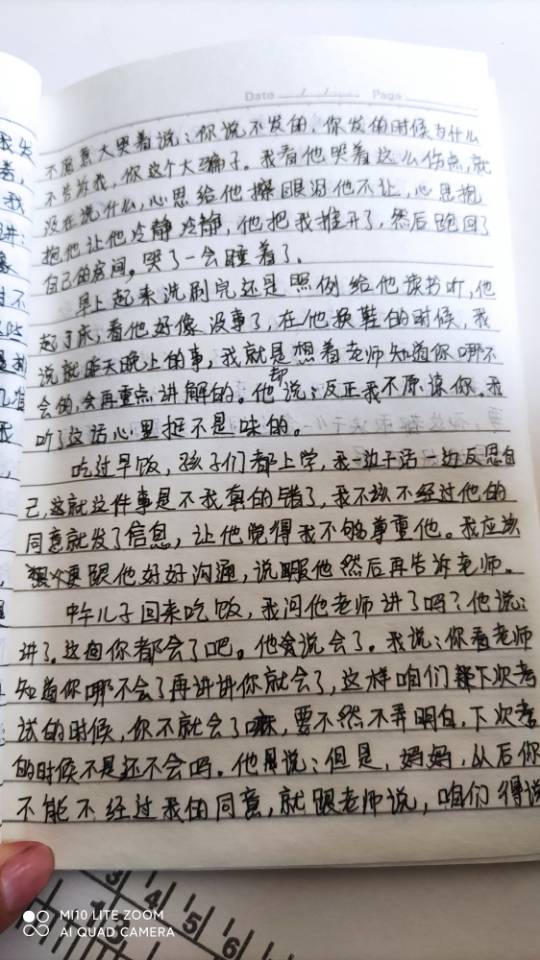 Date / / Page
不愿意大哭着说:你说不发的,你发的时候为什么
不告诉我,你这个大骗子。我看他哭着这么伤点,就
没在说什么,心思给他擦眼泪他不让,心思抱
抱他让他冷静冷静,他把我推开了,然后跑回了
自己的房间。哭了一会睡着了。
早上起来洗刷完还是照例给他读书听,他
起了床,看他好像没事了,在他换鞋的时候,我
说就昨天晚上的事,我就是想着老师知道你哪不
会的,会再重点讲解的。他却说:反正我不原谅你。我
听了这话心里挺不是味的。
吃过早饭,孩子们都上学,我一边干活一边反思自
己,这就这件事是不我真的错了,我不该不经过他的
同意就发了信息,让他觉得我不够尊重他。我应该
要跟他好好沟通,说服他然后再告诉老师。
中午儿子回来吃饭,我问他老师讲了吗?他说:
讲了。这回你都会了吧。他说会了。我说:你看老师
知道你哪不会了再讲讲你就会了,这样咱们下次考
试的时候,你不就会了嘛,要不然不弄明白,下次考
的时候不是还不会吗。他说:但是,妈妈,从后你
不能不经过我的同意,就跟老师说,咱们得说
MI 10 LITE ZOOM
AI QUAD CAMERA
3
4
5
6